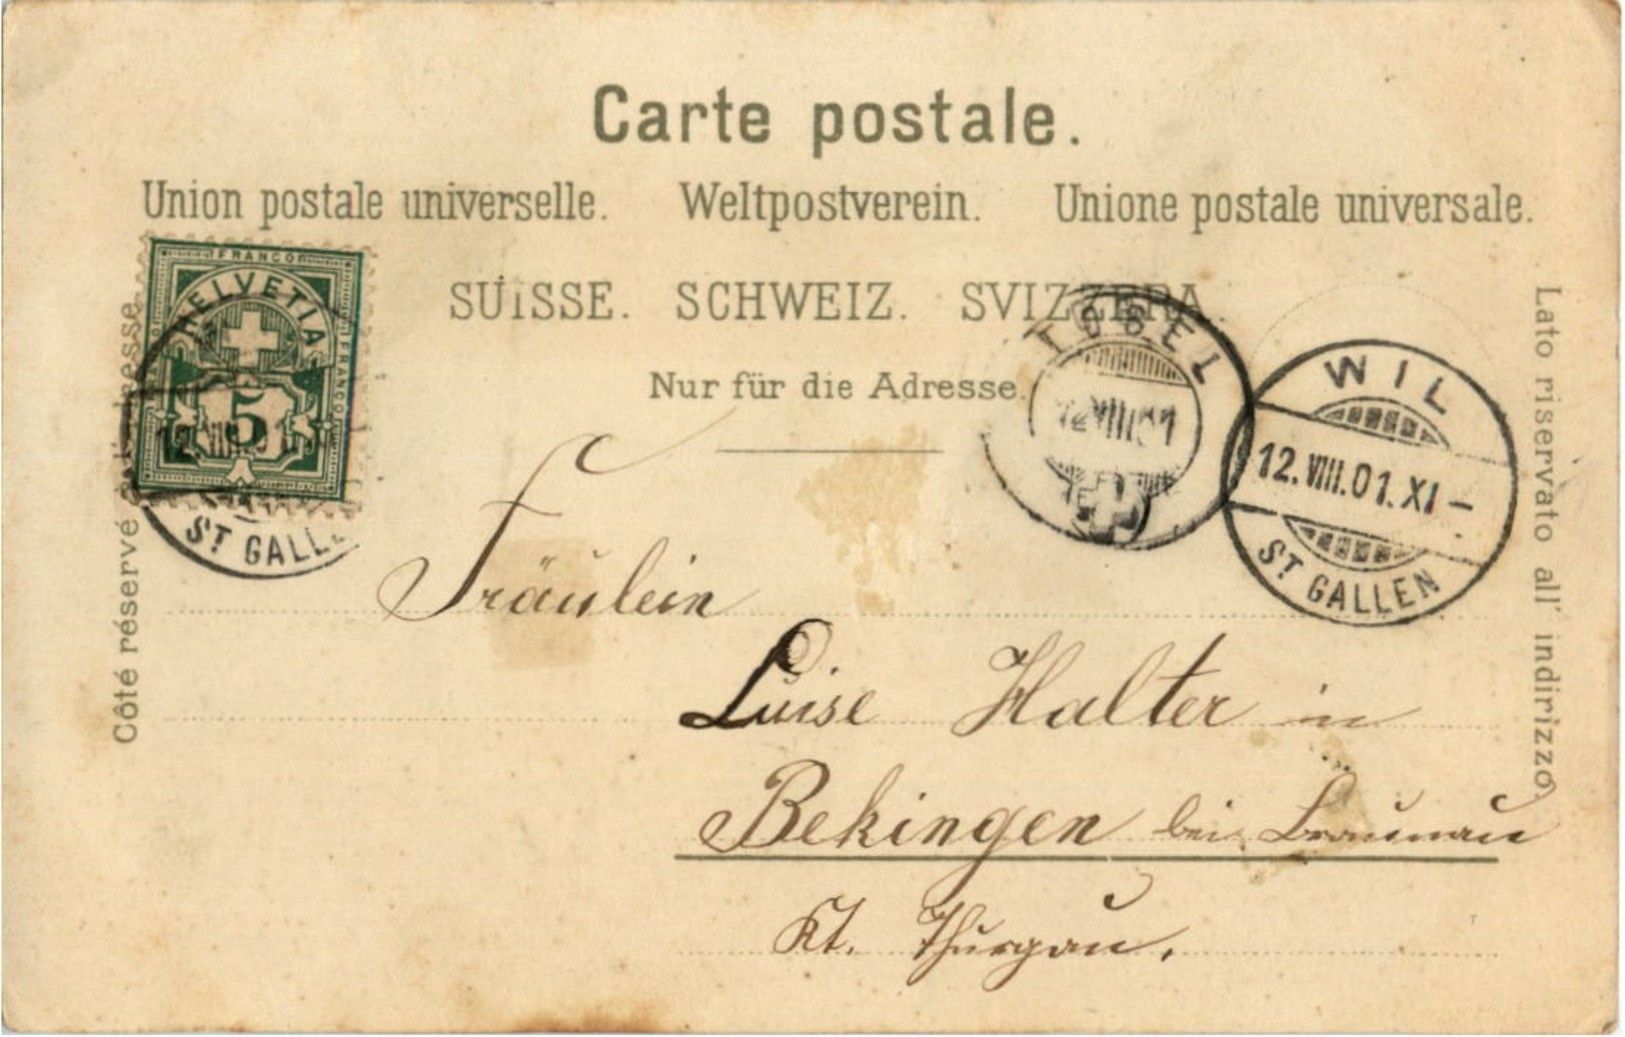 Carte postale.
Union postale universelle. Weltpostverein. Unione postale universale.
SUISSE. SCHWEIZ. SVIZZERA.
Nur für die Adresse.
Côté réservé
Lato riservato all' indirizzo.
FRANCO
HELVETIA
FRANCO
5
ST GALL
TOBEL
12 VIII 01
WIL
12. VIII. 01. XI –
ST GALLEN
Fräulein
Luise Halter in
Bekingen bei Braunau
Kt. Thurgau.